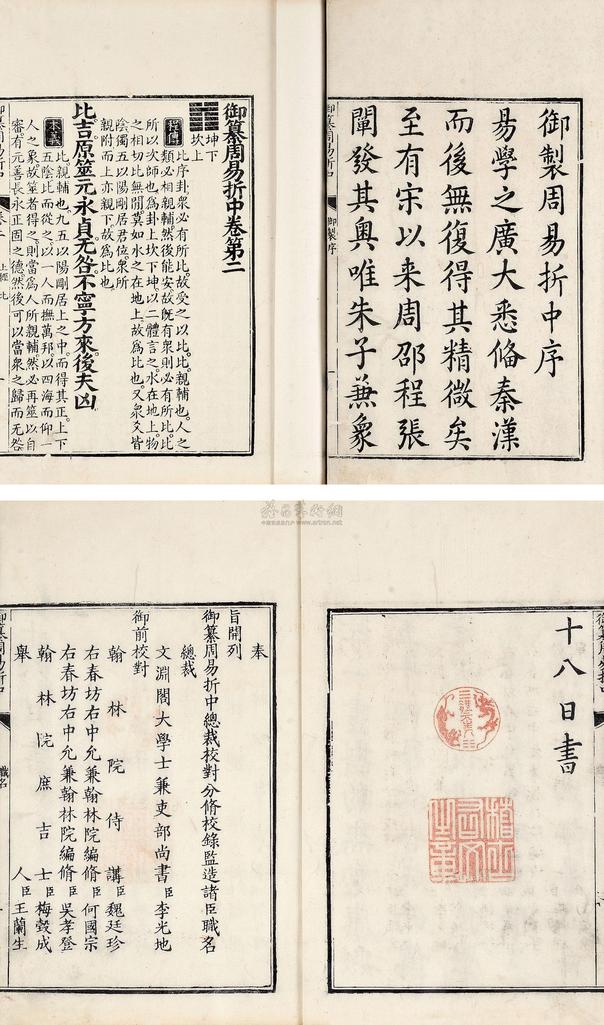 御製周易折中序
易學之廣大悉俻秦漢
而後無復得其精微矣
至有宋以来周邵程張
闡發其奥唯朱子蕪象
御製序
御纂周易折中卷第二
坤下
坎上
程傳
比序卦衆必有所比故受之以比比親輔也人之
類必相親輔然後能安故既有衆則必有所比比
所以次師也為卦上坎下坤以二體言之水在地上物
之相切比无間莫如水之在地上故為比也又衆爻皆
陰獨五以陽剛居君位衆所
親附而上亦親下故為比也
比吉原筮元永貞无咎不寧方來後夫凶
本義
比親輔也九五以陽剛居上之中而得其正上下
五陰比而從之以一人而撫萬邦以四海而仰一
人之象故筮者得之則當為人所親輔然必再筮以自
審有元善長永正固之德然後可以當衆之歸而无咎
御纂周易折中
卷二
上經 比
一
十八日書
奉
旨開列
御纂周易折中總裁校對分脩校錄監造諸臣職名
總裁
文淵閣大學士兼吏部尚書臣李光地
御前校對
翰林院侍講臣魏廷珍
右春坊右中允兼翰林院編脩臣何國宗
右春坊右中允兼翰林院編脩臣吳孝登
翰林院庶吉士臣梅瑴成
舉人臣王蘭生
御纂周易折中
職名
一
www.artron.net